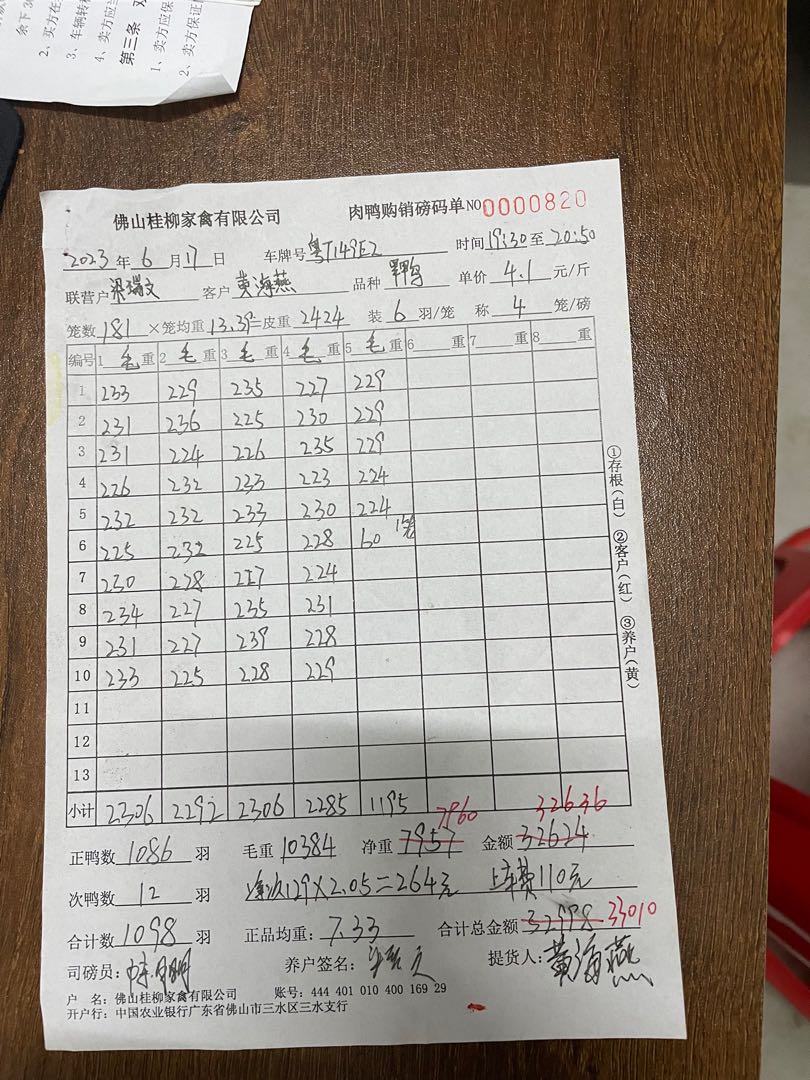 余下3
2、买方在
3、车辆转移
4、卖方应当
第三条 双
1、卖方应保
2、卖方保证
佛山桂柳家禽有限公司 肉鸭购销磅码单 NO 0000820
2023 年 6 月 17 日 车牌号 粤T149E2 时间 19:30 至 20:50
联营户 梁瑞文 客户 黄海燕 品种 单价 4.1 元/斤
笼数 181 ×笼均重 13.39 =皮重 2424 装 6 羽/笼 称 4 笼/磅
编号 1 毛 重 2 毛 重 3 毛 重 4 毛 重 5 毛 重 6 重 7 重 8 重
1 233 229 235 227 229
2 231 236 225 230 229
3 231 224 226 235 229
4 226 232 233 223 224
5 232 232 233 230 224
6 225 232 225 228 60 1笼
7 230 228 227 224
8 234 227 235 231
9 231 227 239 228
10 233 225 228 229
11
12
13
小计 2306 2292 2306 2285 1195 7960 32636
正鸭数 1086 羽 毛重 10384 净重 7957 金额 32624
次鸭数 12 羽 129×2.05=264元 上车费110元
合计数 1098 羽 正品均重: 7.33 合计总金额 32998 33010
司磅员: 养户签名: 提货人: 黄海燕
户 名: 佛山桂柳家禽有限公司 账号: 444 401 010 400 169 29
开户行: 中国农业银行广东省佛山市三水区三水支行
①存根(白) ②客户(红) ③养户(黄)